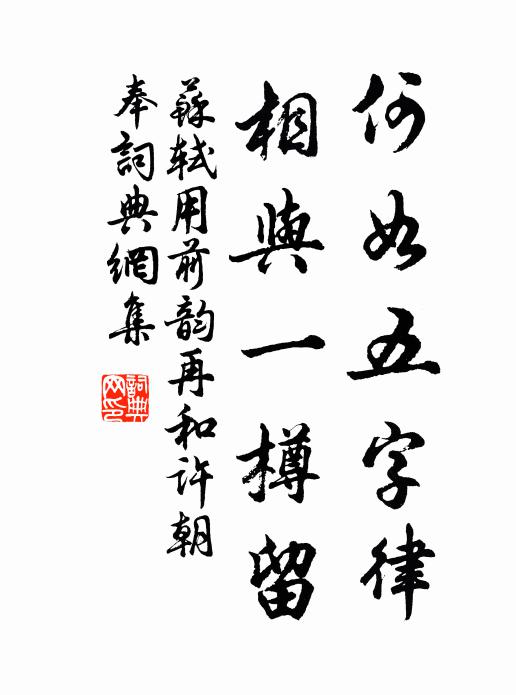 何如五字律
相與一樽留
蘇軾用前韵再和許朝
奉詞典網集
詞典
网印